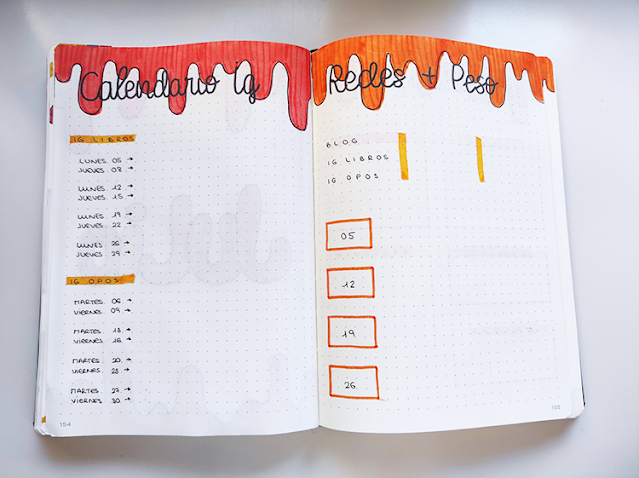 Calendario ig
IG LIBROS
LUNES. 05 →
JUEVES. 08 →
LUNES. 12 →
JUEVES. 15 →
LUNES. 19 →
JUEVES. 22 →
LUNES. 26 →
JUEVES. 29 →
IG OPOS
MARTES. 06 →
VIERNES. 09 →
MARTES. 13 →
VIERNES. 16 →
MARTES. 20 →
VIERNES. 23 →
MARTES. 27 →
VIERNES. 30 →
154
Redes + Peso
BLOG
IG LIBROS
IG OPOS
05
12
19
26
155